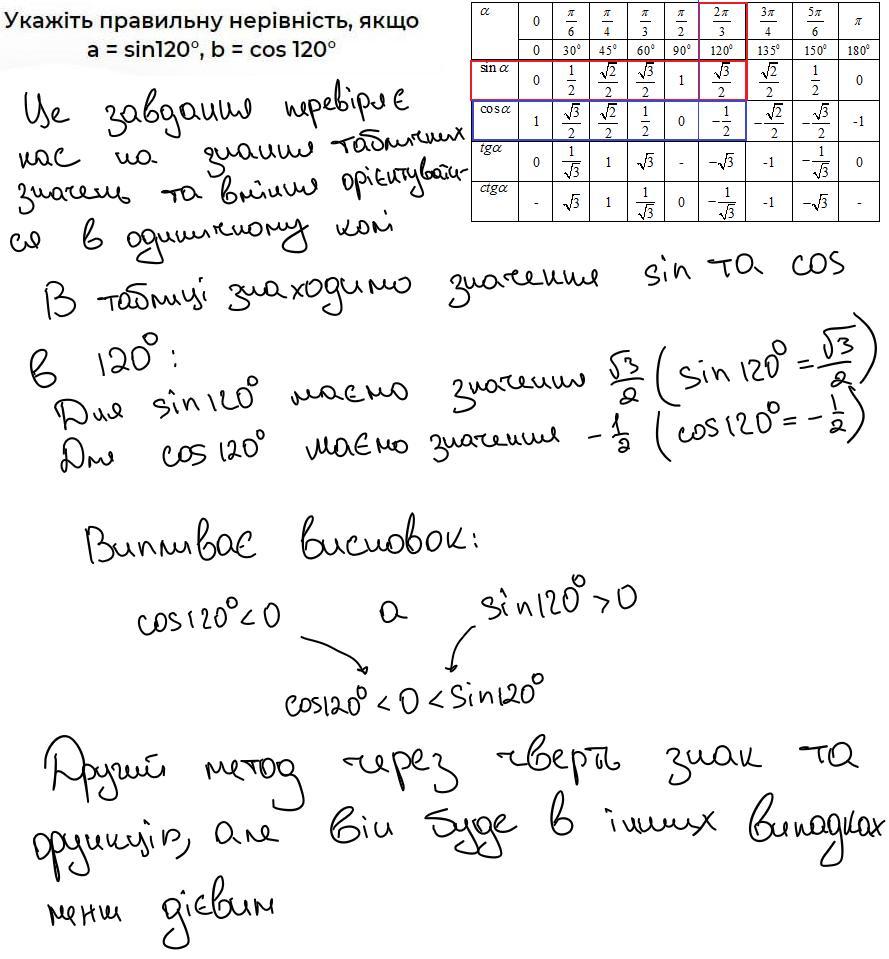 Укажіть правильну нерівність, якщо
a = sin120°, b = cos 120°
α 0 π/6 π/4 π/3 π/2 2π/3 3π/4 5π/6 π
0 30° 45° 60° 90° 120° 135° 150° 180°
sin α 0 1/2 √2/2 √3/2 1 √3/2 √2/2 1/2 0
cos α 1 √3/2 √2/2 1/2 0 -1/2 -√2/2 -√3/2 -1
tgα 0 1/√3 1 √3 - -√3 -1 -1/√3 0
ctgα - √3 1 1/√3 0 -1/√3 -1 -√3 -
Це завдання перевіряє
нас на знання табличних
значень та вміння орієнтувати-
ся в одиничному колі
В таблиці знаходимо значення sin та cos
в 120°:
Для sin120° маємо значення √3/2 (sin120° = √3/2)
Для cos120° маємо значення -1/2 (cos120° = -1/2)
Випливає висновок:
cos120° < 0 а sin120° > 0
cos120° < 0 < sin120°
Другий метод через чверть знак та
функцію, але він буде в інших випадках
менш дієвим